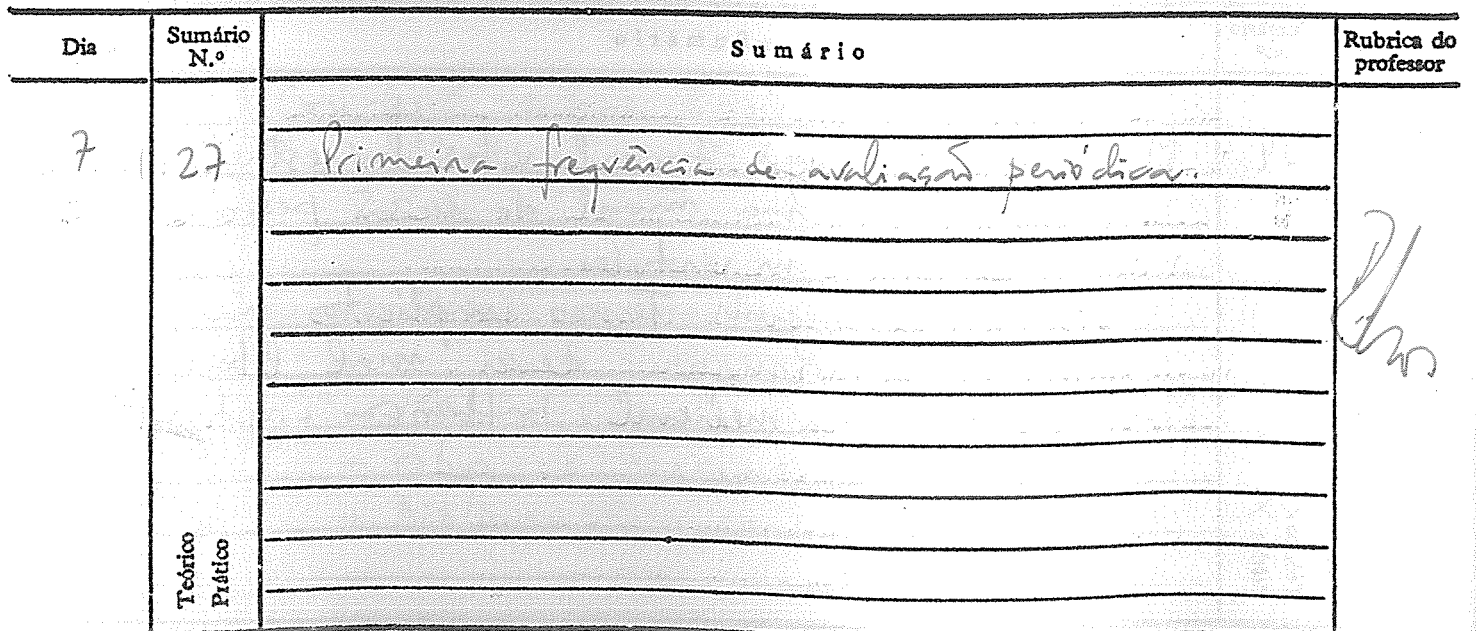 Dia
Sumário
N.º
Sumário
Rubrica do
professor
7
27
Primeira freqvência de avaliação periódica.
Teórico
Prático